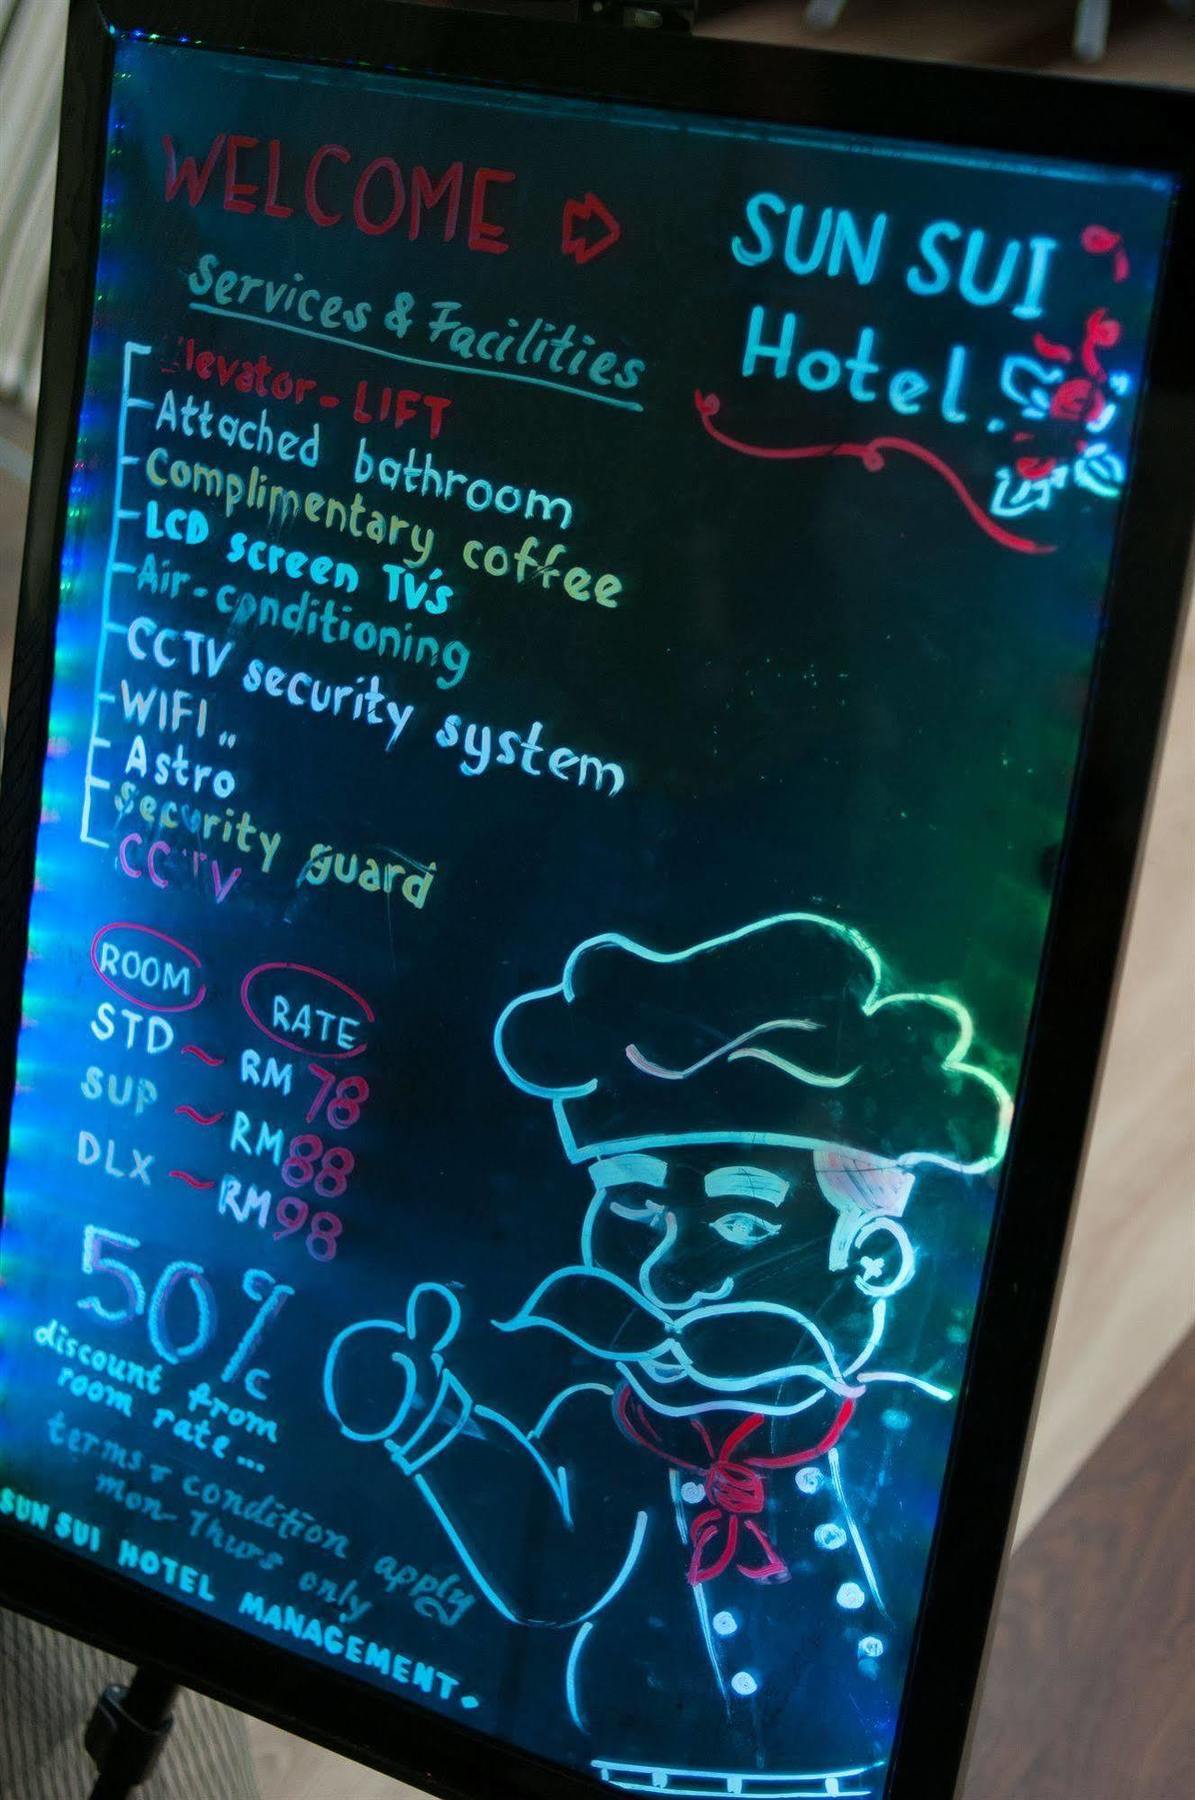 WELCOME
SUN SUI
Hotel
Services & Facilities
Elevator - LIFT
Attached bathroom
Complimentary coffee
LCD screen TV's
Air-conditioning
CCTV security system
WIFI "
Astro
Security guard
CCTV
ROOM RATE
STD ~ RM 78
SUP ~ RM 88
DLX ~ RM 98
50%
discount from
room rate...
terms & condition apply
mon-Thurs only
SUN SUI HOTEL MANAGEMENT.